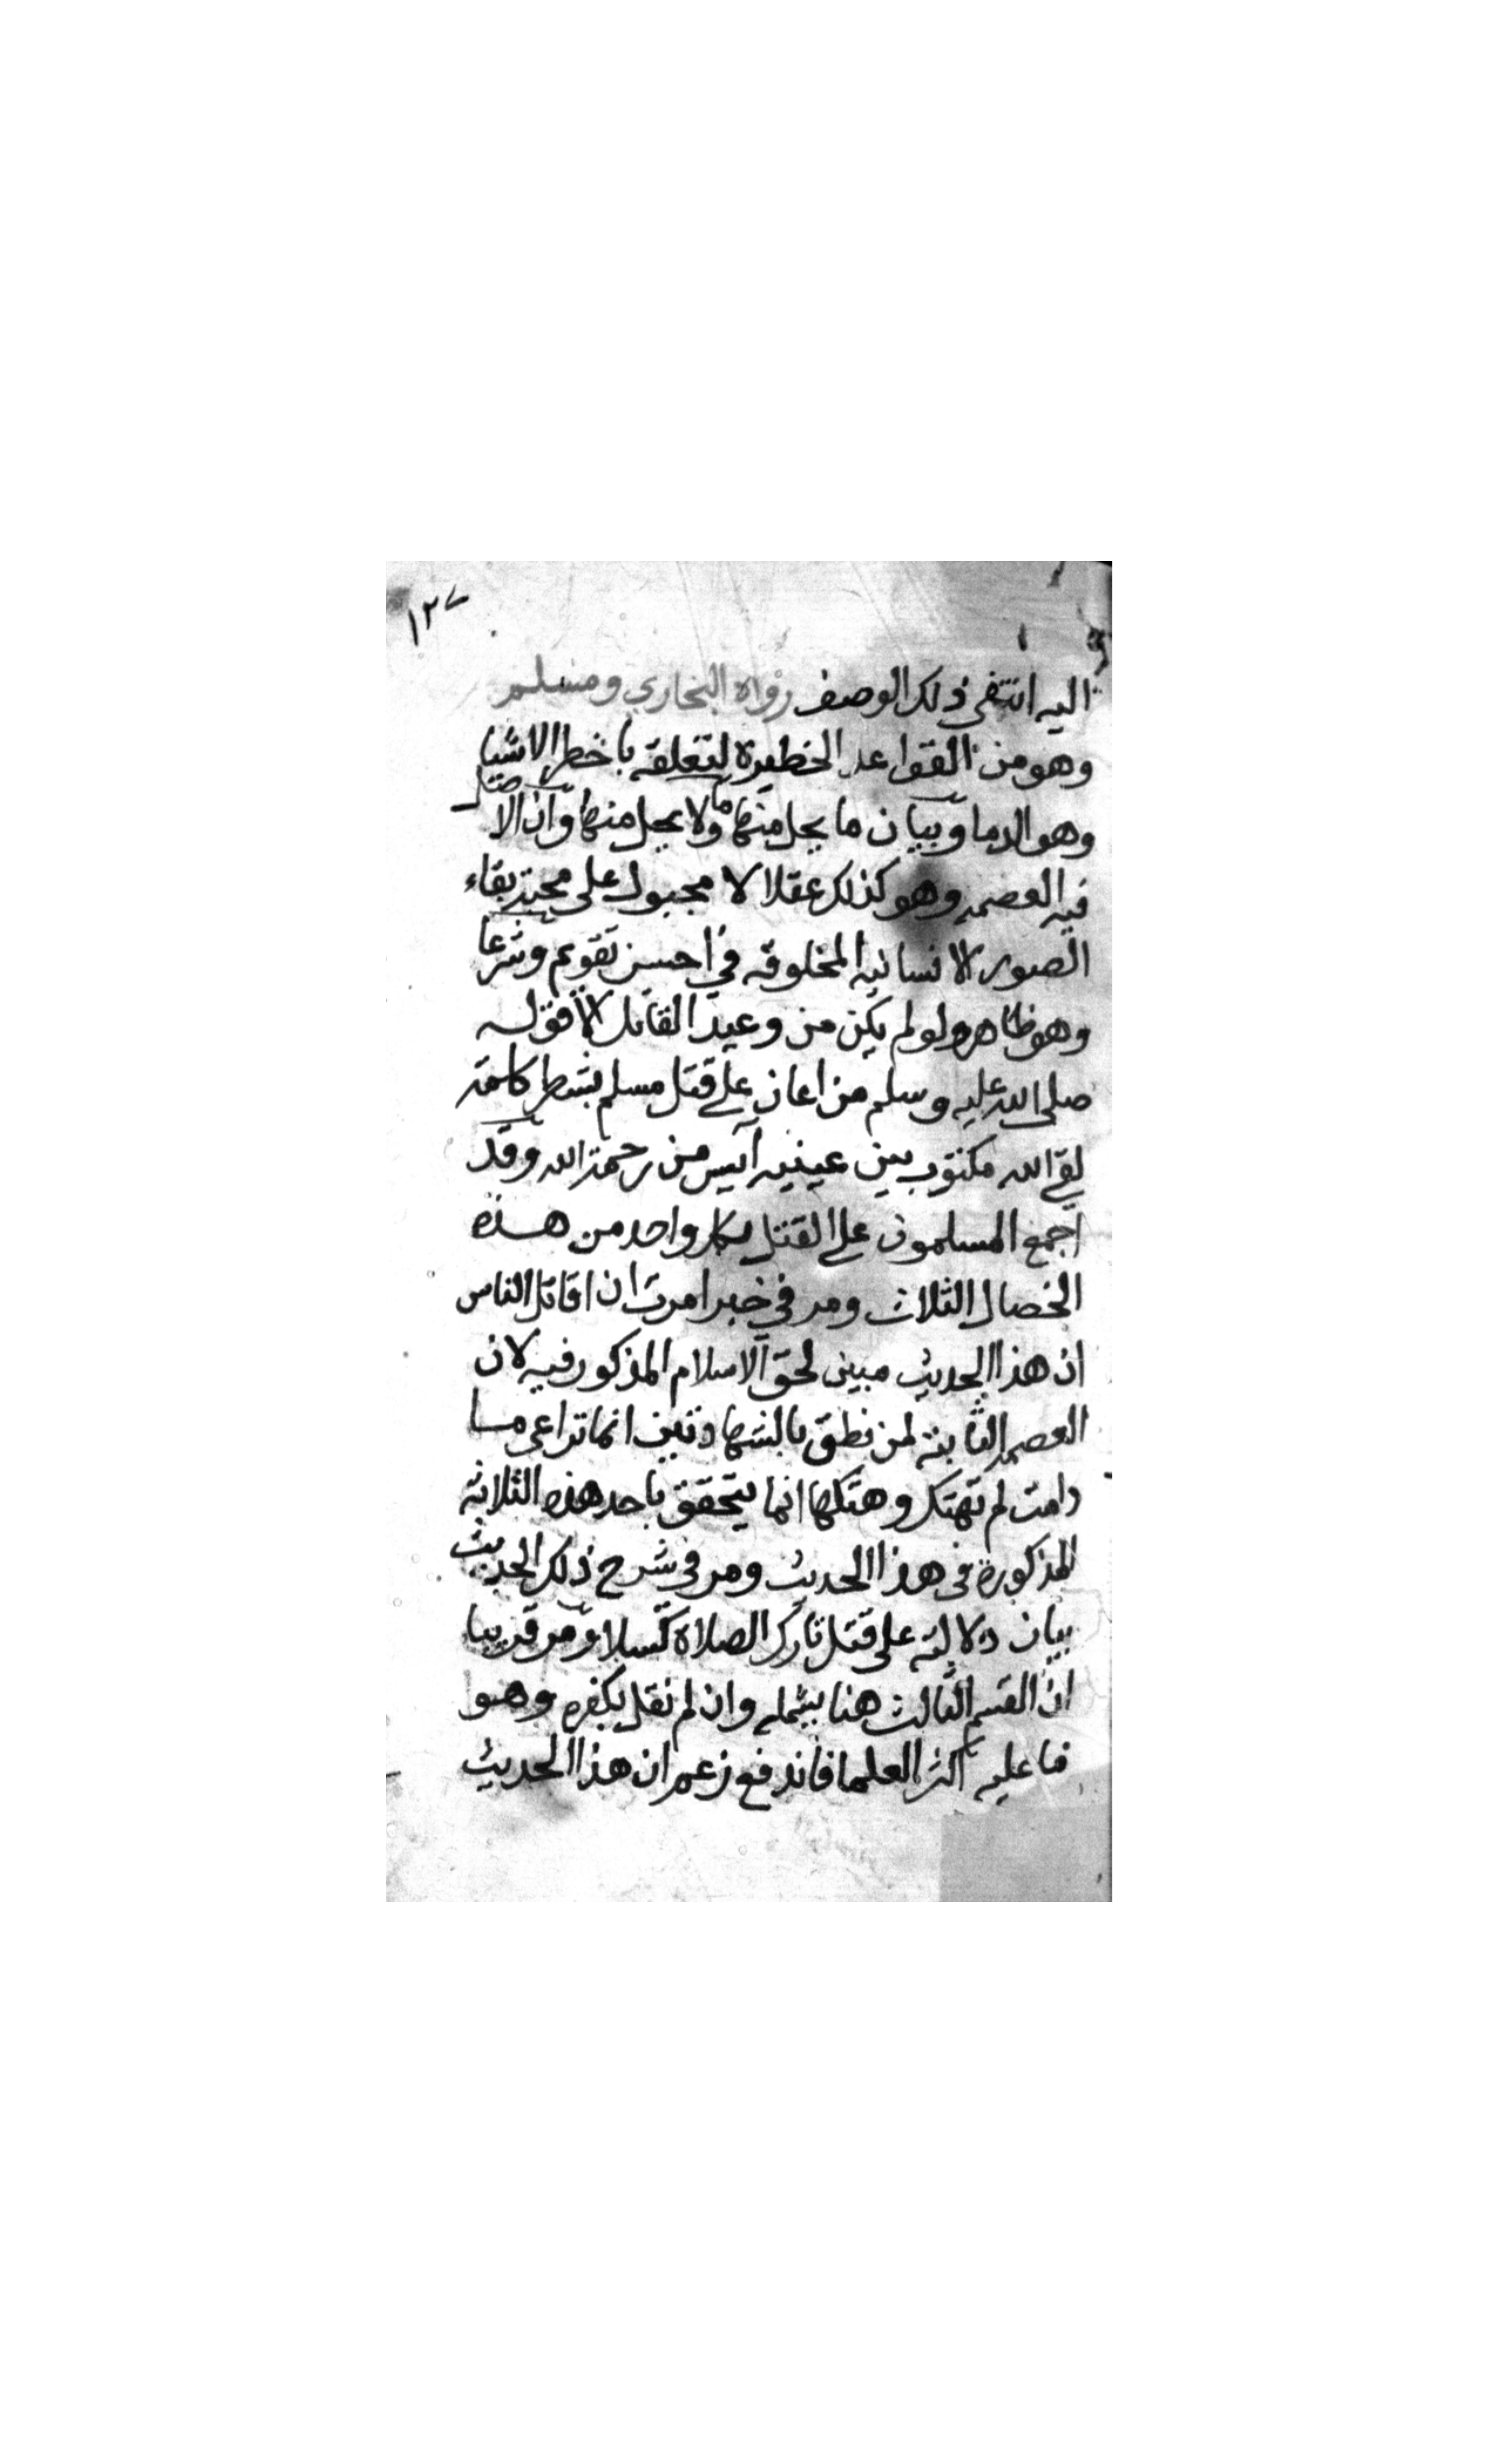 ١٢٧
اليه انتفى ذلك الوصف رواه البخاري ومسلم
وهو من القواعد الخطيرة لتعلقه باخطر الاشيا
وهو الدما وبيان ما يحل منها وما لا يحل منها وان الاصل
فيه العصمه وهو كذلك عقلا لا مجبول على محبة بقاء
الصور الانسانيه المخلوقه في احسن تقويم وشرعا
وهو ظاهر ولو لم يكن من وعيد القاتل الا قوله
صلى الله عليه وسلم من اعان على قتل مسلم بشطر كلمة
لقي الله مكتوب بين عينيه آيس من رحمة الله وقد
اجمع المسلمون على القتل بكل واحد من هذه
الخصال الثلاث ومر في خبر امرت ان اقاتل الناس
ان هذا الحديث مبين لحق الاسلام المذكور فيه لان
العصمه الثابته لمن نطق بالشهادتين انما تراعى ما
دامت لم تهتك وهتكها انما يتحقق باحد هذه الثلاثة
المذكورة في هذا الحديث ومر في شرح ذلك الحديث
بيان دلالته على قتل تارك الصلاة كسلا ومر قريبا
ان القسم الثالث هنا يشمله وان لم نقل بكفره وهو
ما عليه اكثر العلما فاندفع زعم ان هذا الحديث